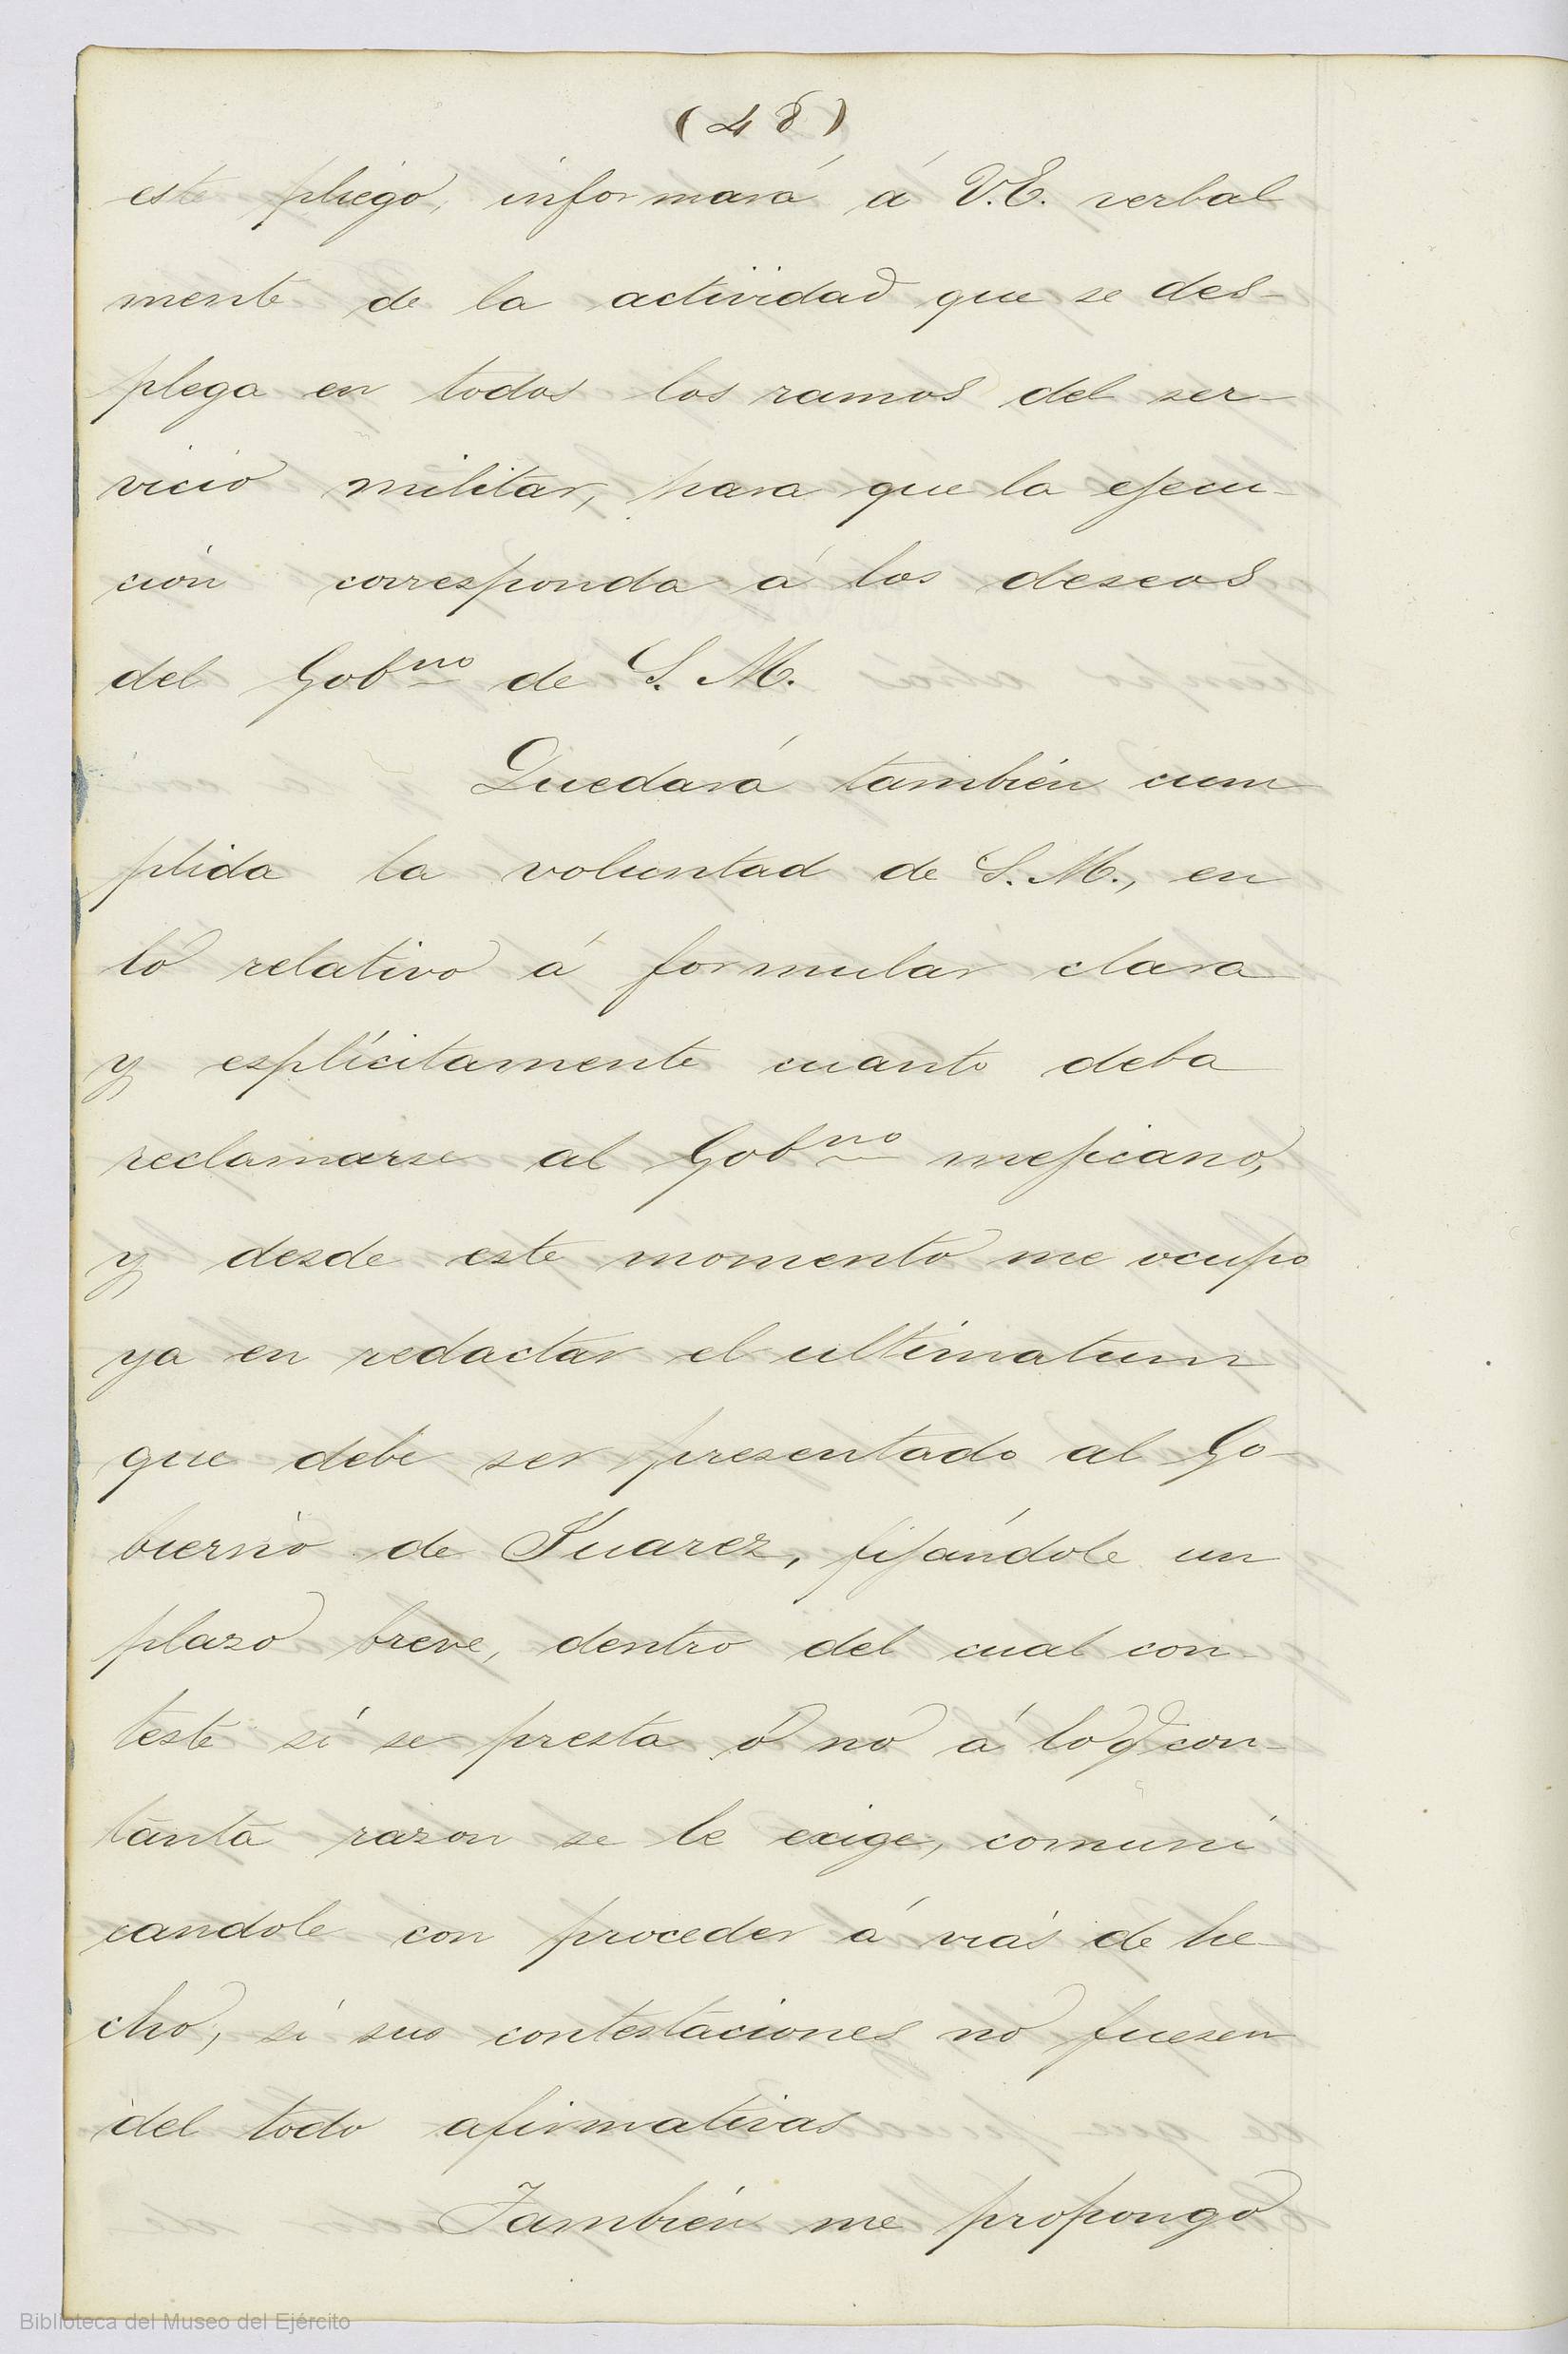 (48)
este pliego, informará á V.E. verbal
mente de la actividad que se des-
plega en todos los ramos del ser-
vicio militar, para que la ejecu-
ción corresponda á los deseos
del Gobno de S. M.
Quedará también cum
plida la voluntad de S. M., en
lo relativo á formular clara
y esplícitamente cuanto deba
reclamarse al Gobno mejicano,
y desde este momento me ocupo
ya en redactar el ultimatum
que debe ser presentado al Go-
bierno de Juarez, fijándole un
plazo breve, dentro del cual con-
teste sí se presta ó no á lo q con-
tanta razon se le exige, comuni
candole con proceder á vias de he
cho, si sus contestaciones no fuesen
del todo afirmativas
También me propongo
Biblioteca del Museo del Ejército